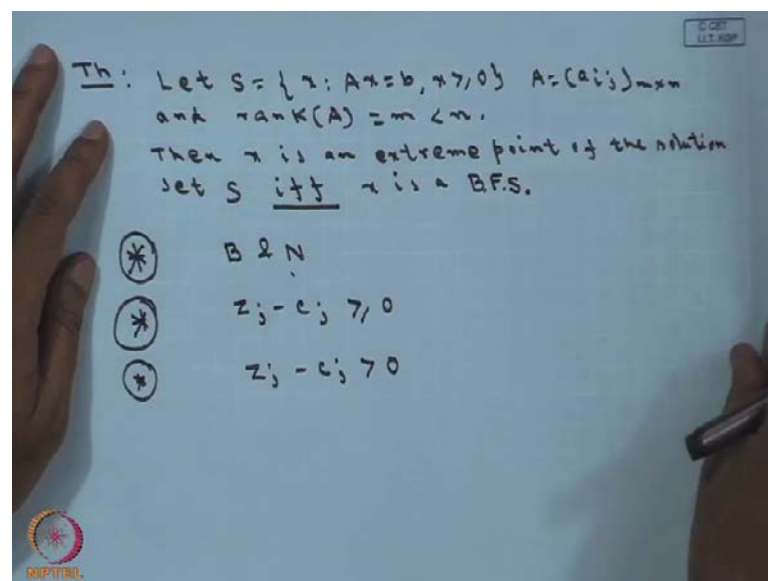 © CET
I.I.T. KGP
Th: Let S = { x: Ax=b, x ≥ 0} A=(aij)m×n
and rank(A) = m < n.
Then x is an extreme point of the solution
set S iff x is a B.F.S.
* B & N
* zj - cj ≥ 0
* zj - cj > 0
NPTEL